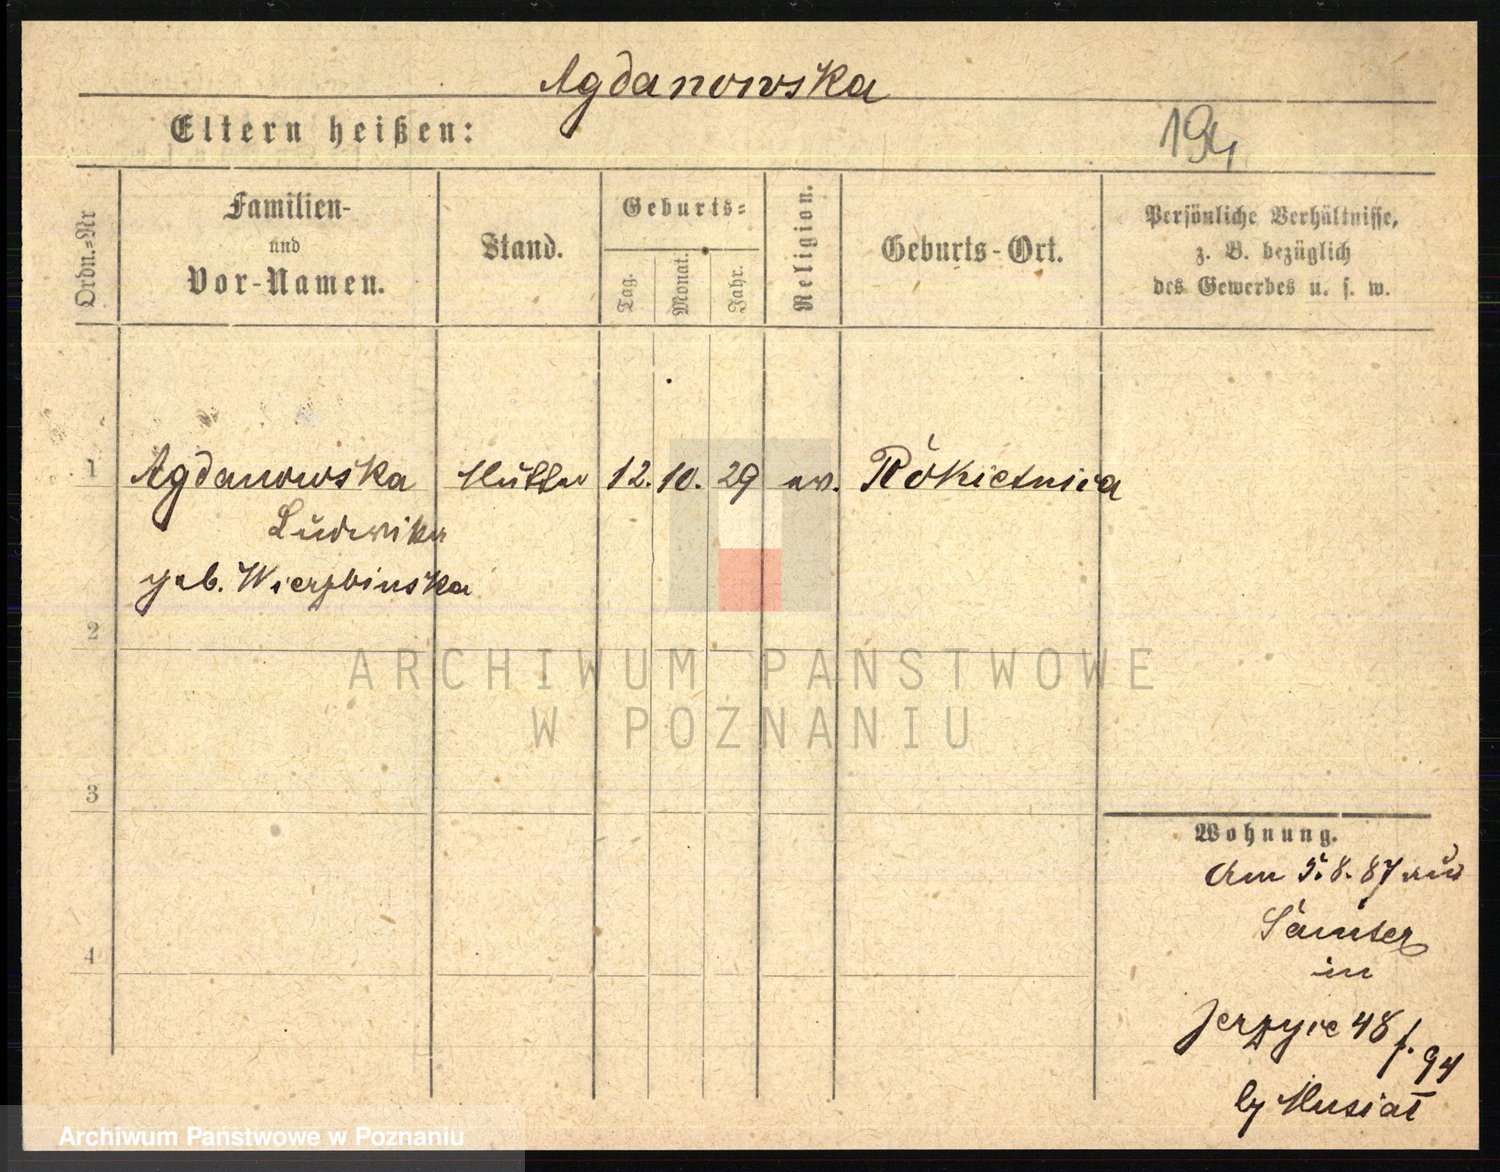 Agdanowska
Eltern heißen:
194
Ordn.=Nr
Familien-
und
Vor-Namen.
Stand.
Geburts=
Tag.
Monat.
Jahr.
Religion.
Geburts-Ort.
Persönliche Verhältnisse,
z. B. bezüglich
des Gewerbes u. s. w.
1 Agdanowska Mutter 12. 10. 29 ev. Rokietnica
Ludwika
geb. Wierzbinska
2
ARCHIWUM PAŃSTWOWE
W POZNANIU
3
Wohnung.
Am 5.8.87 aus
Samter
4
in
Jerzyce 48 f. 94
by Musiał
Archiwum Państwowe w Poznaniu